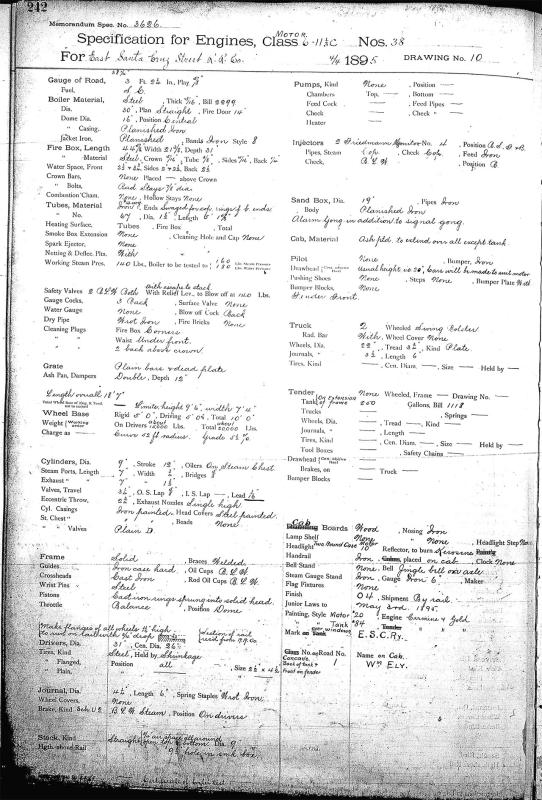 242
Memorandum Spec. No. 3626
Specification for Engines, Class MOTOR 6-11⅓C Nos. 38
For East Santa Cruz Street R. R. Co. 1895 DRAWING No. 10
Gauge of Road, 3 Ft. 2½ In., Play
Fuel, S. C.
Boiler Material, Steel, Thick 7/16", Bill 2299
Dia. 30", Plan Straight, Fire Door 14"
Dome Dia. Position Central
" Casing, Planished Iron
Jacket Iron, Planished, Bands Iron Style 8
Fire Box, Length Width Depth
" Material Steel, Crown Tube Sides Back
Water Space, Front Sides Back
Crown Bars, None Placed — above Crown
" Bolts, Rad Stays ⅞" dia.
Combustion Cham. None, Hollow Stays None
Tubes, Material Iron, Ends Swaged for cop. rings f. b. ends
" No. 47, Dia. 1½", Length
Heating Surface, Tubes , Fire Box , Total
Smoke Box Extension None , Cleaning Hole and Cap None
Spark Ejector, None
Netting & Deflec. Plts. With
Working Steam Pres. 140 Lbs., Boiler to be tested to 160 180 Lbs. Steam Pressure Lbs. Water Pressure
Safety Valves 2 B.L.W. Both With Relief Lev., to Blow off at 140 Lbs.
Gauge Cocks, 3 Back , Surface Valve None
Water Gauge None , Blow off Cock Back
Dry Pipe Wrot Iron , Fire Bricks None
Cleaning Plugs Fire Box Corners
" " Waist Under front.
" " 2 back above crown
Grate Plain bars & dead plate
Ash Pan, Dampers Double, Depth 12"
Length overall 18' 7"
Limits, height 9' 6", width 7' 4"
Wheel Base Rigid 5' 0", Driving 5' 0", Total 10' 0"
Weight (Working order) On Drivers about Lbs. Total about 20,000 Lbs.
Charge as — Curve 52 ft radius. Grade 5½ %
Cylinders, Dia. 9", Stroke 12", Oilers On Steam Chest
Steam Ports, Length 7", Width Bridges
Exhaust " " 7" " 1½"
Valves, Travel 3½", O. S. Lap I. S. Lap — Lead 1/16
Eccentric Throw, Exhaust Nozzles Single high
Cyl. Casings Iron painted, Head Covers Steel painted
St. Chest " " " , Beads None
" Valves Plain D
Frame Solid , Braces Welded
Guides, Iron case hard., Oil Cups B.L.W.
Crossheads Cast Iron , Rod Oil Cups B.L.W.
Wrist Pins Steel
Pistons Cast iron rings sprung into solid head.
Throttle Balance, Position Dome
Make flanges of all wheels ½" high
Drivers, Dia. 31", Cen. Dia. 26"
Tires, Kind Steel, Held by Shrinkage
" Flanged, Position all , Size
" Plain, "
Journal, Dia. 4½, Length 6", Spring Staples Wrot Iron
Wheel Covers, None
Brake, Kind B.L.W. Steam , Position On drivers
Stack, Kind Straight open top & bottom Dia. 9"
Hgth. above Rail 9½ hole in smk. box.
Pumps, Kind None , Position —
Chambers Top, — , Bottom —
Feed Cock — , Feed Pipes —
Check — , Check "
Heater —
Injectors 2 Friedmann Monitor No. 4 Position
Pipes, Steam Cop. , Check Cop., Feed Iron
Check, B.L.W. Position B.
Sand Box, Dia. 19" Pipes Iron
Body Planished Iron
Alarm Gong in addition to signal gong.
Cab, Material Ash fld. to extend over all except tank.
Pilot None , Bumper, Iron
Drawhead Usual height is 20", Cars will be made to suit motor
Pushing Shoes None , Steps None , Bumper Plate With
Bumper Blocks, None
Fender Front.
Truck 2 Wheeled Swing Bolster
Rad. Bar With, Wheel Cover None
Wheels, Dia. 22", Tread 3½", Kind Plate
Journals, " 3½ , Length 6"
Tires, Kind , Cen. Diam. — , Size — Held by —
Tender (On Extension of Frame) None Wheeled, Frame — Drawing No. —
Tank 250 Gallons, Bill 1118
Trucks —
Wheels, Dia. — , Tread — , Kind —
Journals, " — , Length —
Tires, Kind — , Cen. Diam. — , Size — Held by —
Tool Boxes — , Safety Chains —
Drawhead —
Brakes, on — Truck —
Bumper Blocks —
Cab Boards Wood , Nosing Iron
Lamp Shelf None " None , Headlight Step No
Headlight Two Round Case Motor 10 Reflector, to burn Kerosene
Handrail Iron placed on cab , Clock None
Bell Stand None, Bell Jingle bell on axle.
Steam Gauge Stand Iron, Gauge Iron 6" , Maker
Flag Fixtures None
Finish O4 , Shipment By rail
Junior Laws to May 3rd 1895.
Painting, Style Motor #20 Engine Carmine & Gold
" " Tank #84 Tender "
Mark on over windows E. S. C. Ry.
Glass No. or Road No. 1
Concave, Back of tank & Front on fender
Name on Cab, Wm ELY.